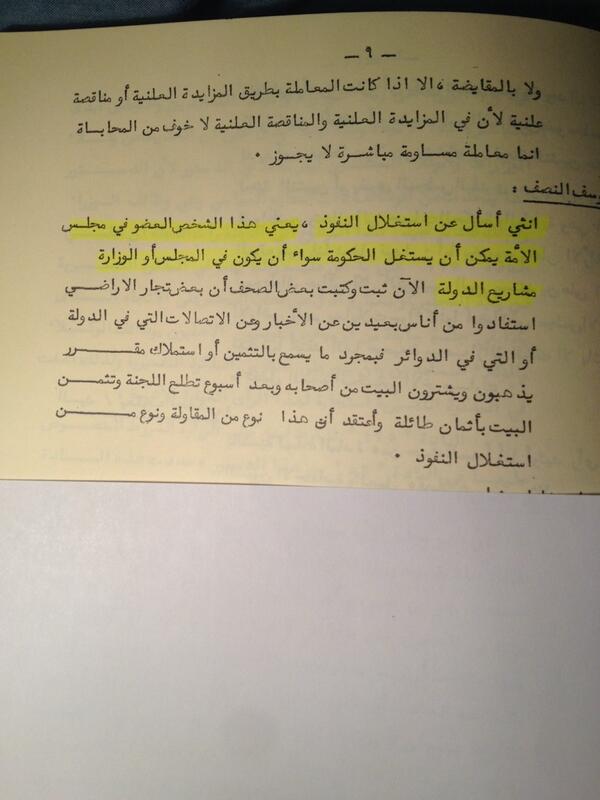 — ٩ —
ولا بالمقايضة ، الا اذا كانت المعاملة بطريق المزايدة العلنية أو مناقصة
علنية لأن في المزايدة العلنية والمناقصة العلنية لا خوف من المحاباة
انما معاملة مساومة مباشرة لا يجوز .
يوسف النصف :
انني أسأل عن استغلال النفوذ ، يعني هذا الشخص العضو في مجلس
الأمة يمكن أن يستغل الحكومة سواء أن يكون في المجلس أو الوزارة
مشاريع الدولة الآن ثبت وكتبت بعض الصحف أن بعض تجار الاراضي
استفادوا من أناس بعيدين عن الأخبار وعن الاتصالات التي في الدولة
أو التي في الدوائر فبمجرد ما يسمع بالتثمين أو استملاك مقرر
يذهبون ويشترون البيت من أصحابه وبعد أسبوع تطلع اللجنة وتثمن
البيت بأثمان طائلة وأعتقد أن هذا نوع من المقاولة ونوع من
استغلال النفوذ .